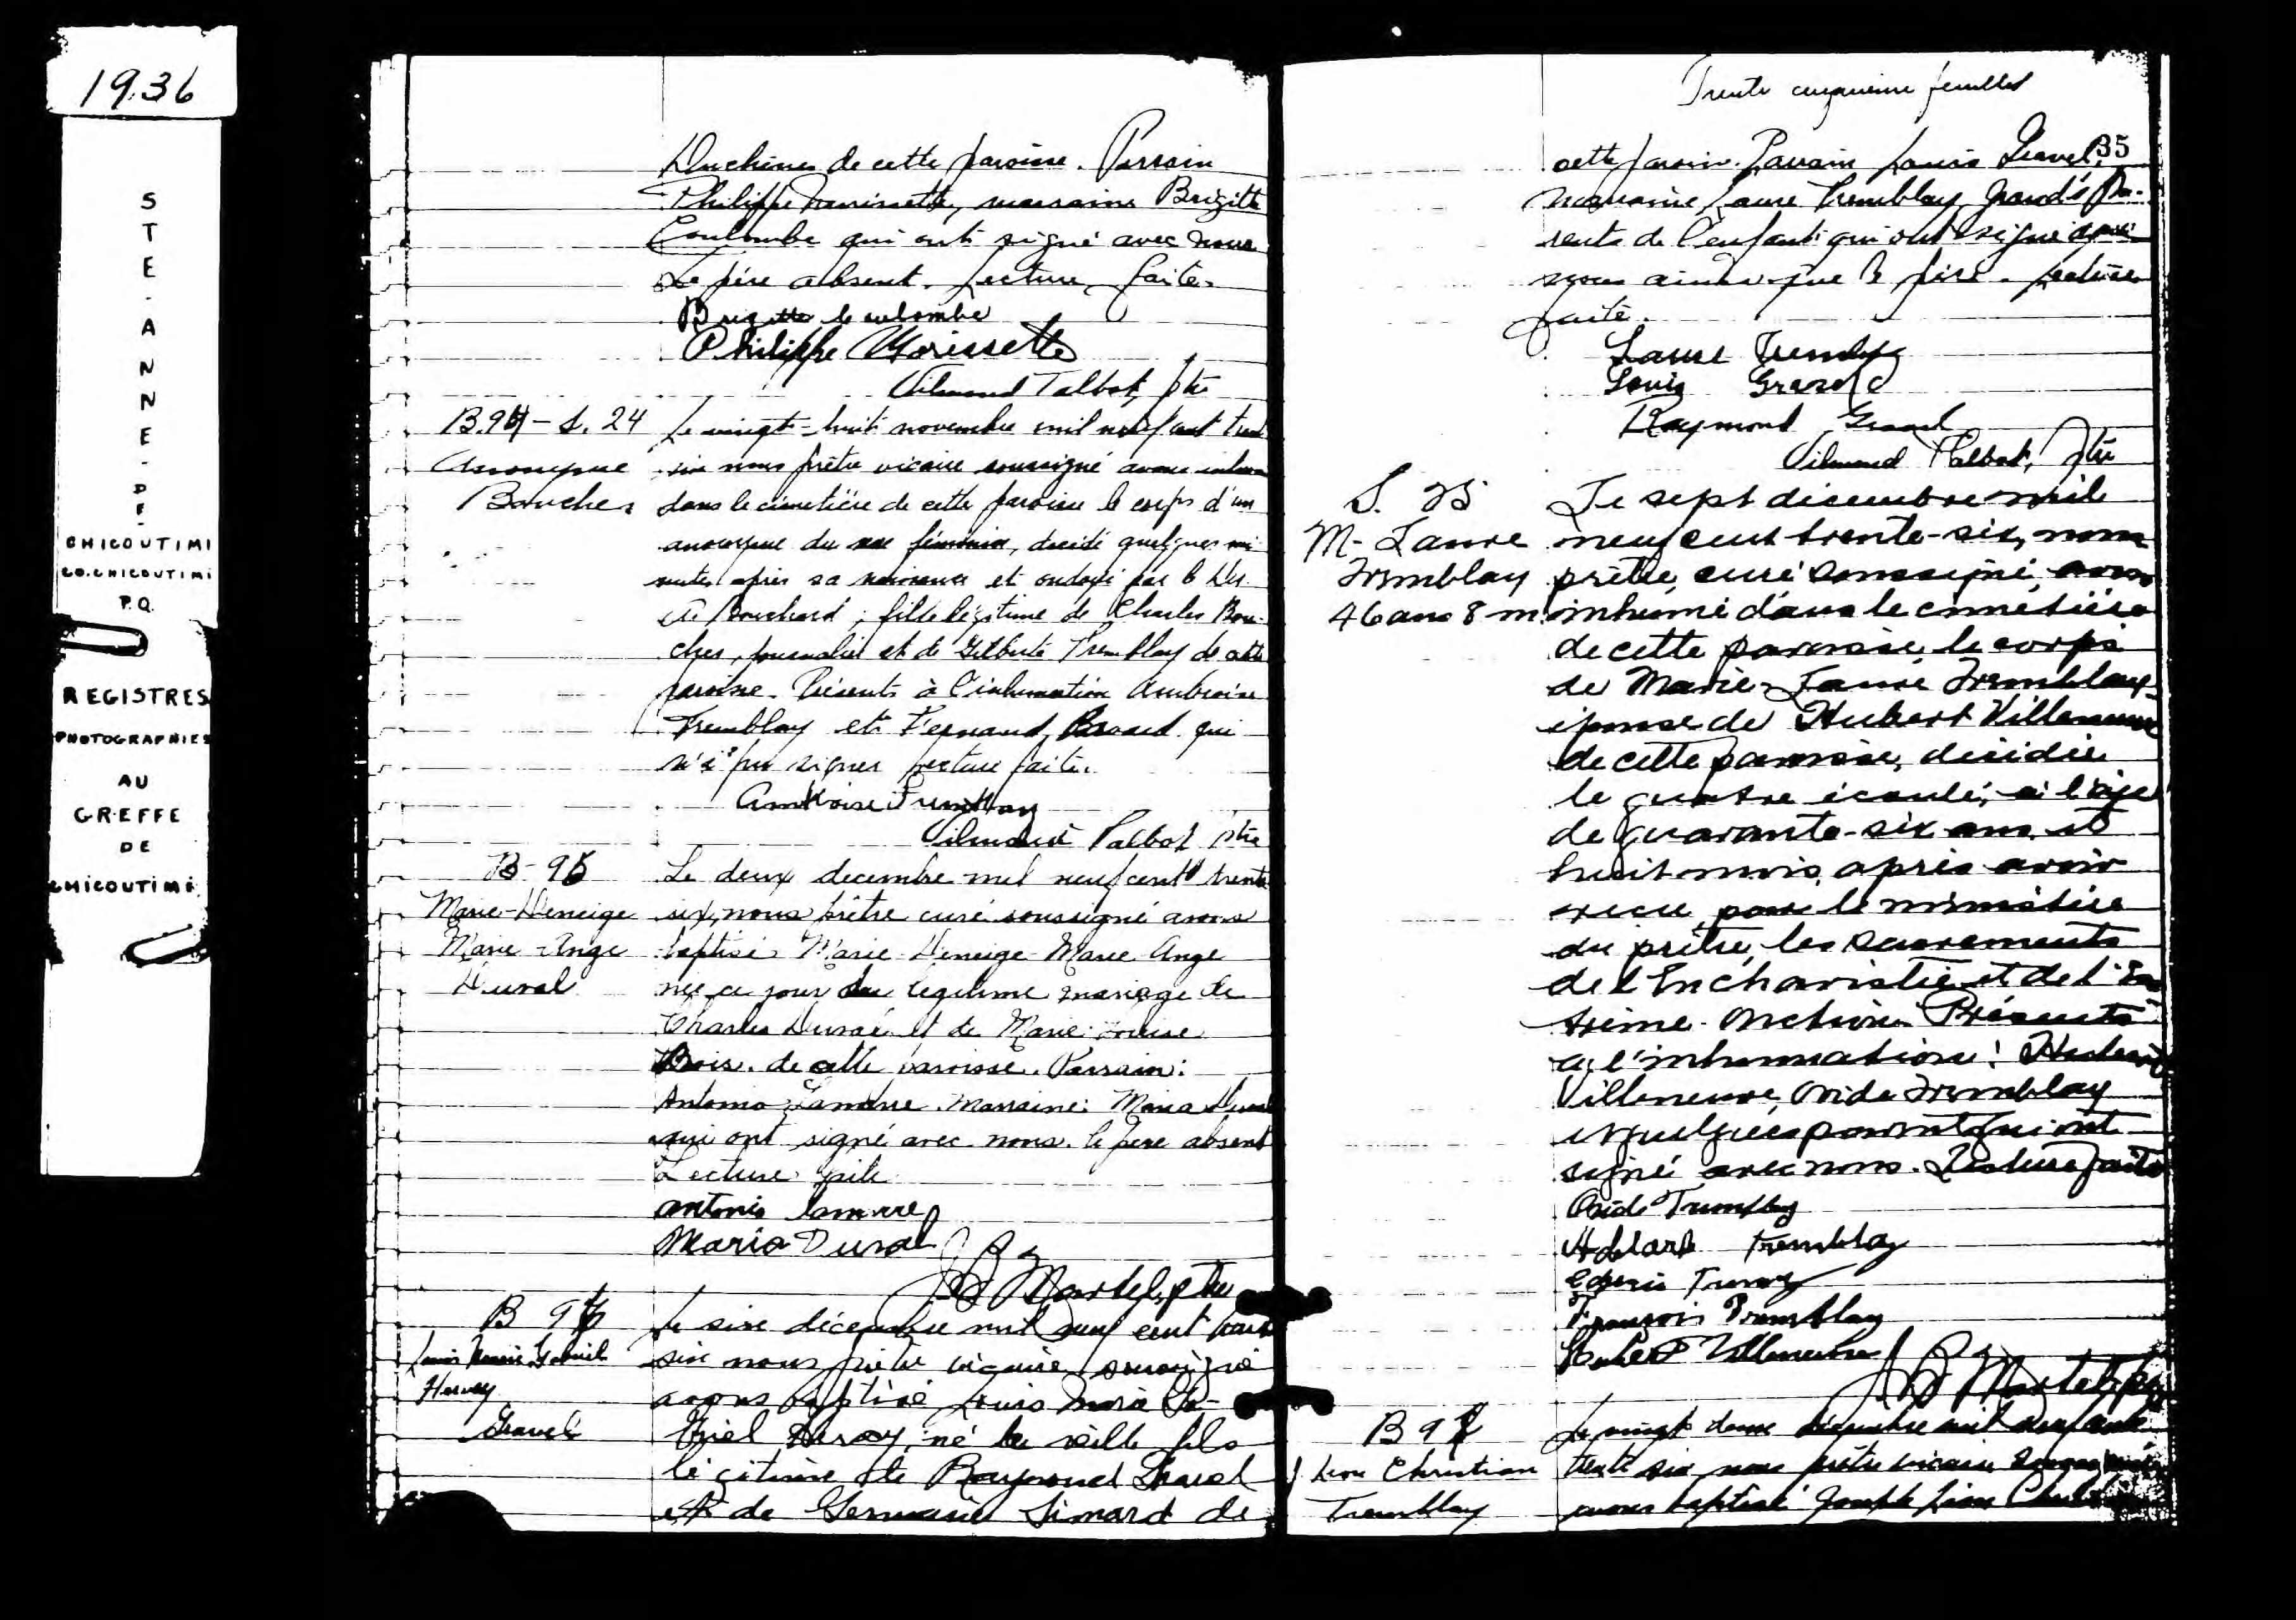 1936
STE-ANNE-DE-
CHICOUTIMI
CO. CHICOUTIMI
P.Q.
REGISTRES
PHOTOGRAPHIES
AU
GREFFE
DE
CHICOUTIMI
Duchêne de cette paroisse. Parrain
Philippe Morissette, marraine Brigitte
Coulombe qui ont signé avec nous
Le père absent. Lecture faite.
Brigitte Coulombe
Philippe Morissette
Talbot, ptre
B.94 - S. 24
Anonyme
Boucher
Le vingt-huit novembre mil neuf cent trente
six nous prêtre vicaire soussigné avons inhumé
dans le cimetière de cette paroisse le corps d'un
anonyme du sexe féminin, décédé quelques mi-
nutes après sa naissance et ondoyé par le Dr.
Bouchard; fille légitime de Charles Bou-
cher, journalier et de Gilberte Tremblay de cette
paroisse. Présents à l'inhumation Ambroise
Tremblay et Fernand Brassard qui
n'a pu signer lecture faite.
Ambroise Tremblay
Talbot ptre
B-95
Marie-Deneige
Marie-Ange
Duval
Le deux decembre mil neuf cent trente
six, nous prêtre curé soussigné avons
baptisé Marie-Deneige-Marie-Ange
née ce jour du legitime mariage de
Charles Duval et de Marie-Louise
Bois. de cette paroisse. Parrain:
Antonio Lamarre. Marraine: Maria Duval
qui ont signé avec nous. le père absent
Lecture faite
Antonio Lamarre
Maria Duval
Martel, ptre
B 96
Louis Marie Gabriel
Hervey
Gravel
Le six décembre mil neuf cent trente
six nous prêtre vicaire soussigné
avons baptisé Louis Marie Ga-
briel Hervey, né la veille fils
légitime de Raymond Gravel
et de Germaine Simard de
Trente cinquième feuillet
35
cette paroisse. Parrain Louis Gravel,
marraine Laure Tremblay, grands pa-
rents de l'enfant qui ont signé avec
nous ainsi que le père. Lecture
faite.
Laure Tremblay
Louis Gravel
Raymond Gravel
Talbot, ptre
S. 25
M-Laure
Tremblay
46 ans 8 m.
Le sept décembre mil
neuf cent trente-six, nous
prêtre, curé soussigné, avons
inhumé dans le cimetière
de cette paroisse, le corps
de Marie-Laure Tremblay,
épouse de Hubert Villeneuve
de cette paroisse, décédée
le quatre écoulé, à l'âge
de quarante-six ans et
huit mois, après avoir
reçu, par le ministère
du prêtre, les sacrements
de l'Eucharistie et de l'Ex-
trême-Onction. Présents
à l'inhumation: Hubert
Villeneuve, Ovide Tremblay
et quelques parents qui ont
signé avec nous. Lecture faite
Ovide Tremblay
Adélard Tremblay
Tremblay
François Tremblay
Hubert Villeneuve
Martel, ptre
B 97
J Léon Christian
Tremblay
Le vingt deux décembre mil neuf cent
trente six nous prêtre vicaire soussigné
avons baptisé Joseph Léon Christian